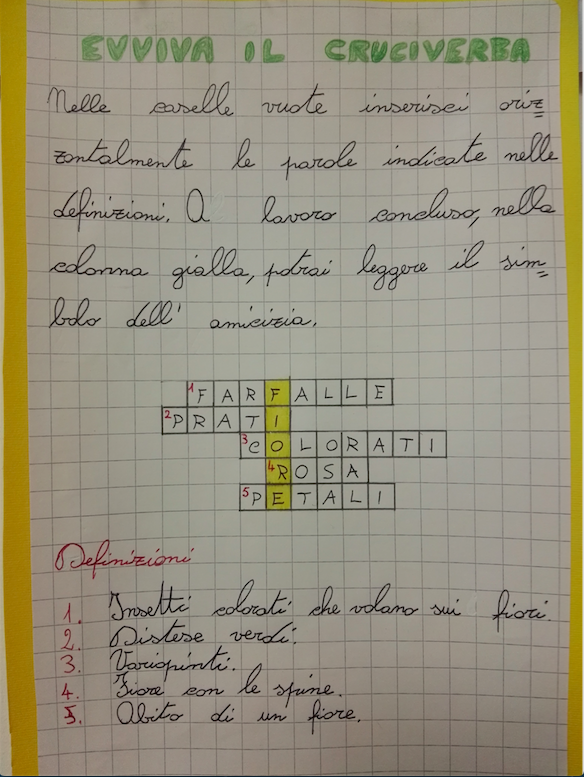 EVVIVA IL CRUCIVERBA
Nelle caselle vuote inserisci oriz=
zontalmente le parole indicate nelle
definizioni. A lavoro concluso, nella
colonna gialla, potrai leggere il sim=
bolo dell' amicizia.
1 FARFALLE
2 PRATI
3 COLORATI
4 ROSA
5 PETALI
Definizioni
1. Insetti colorati che volano sui fiori.
2. Distese verdi.
3. Variopinti.
4. Fiore con le spine.
5. Abito di un fiore.